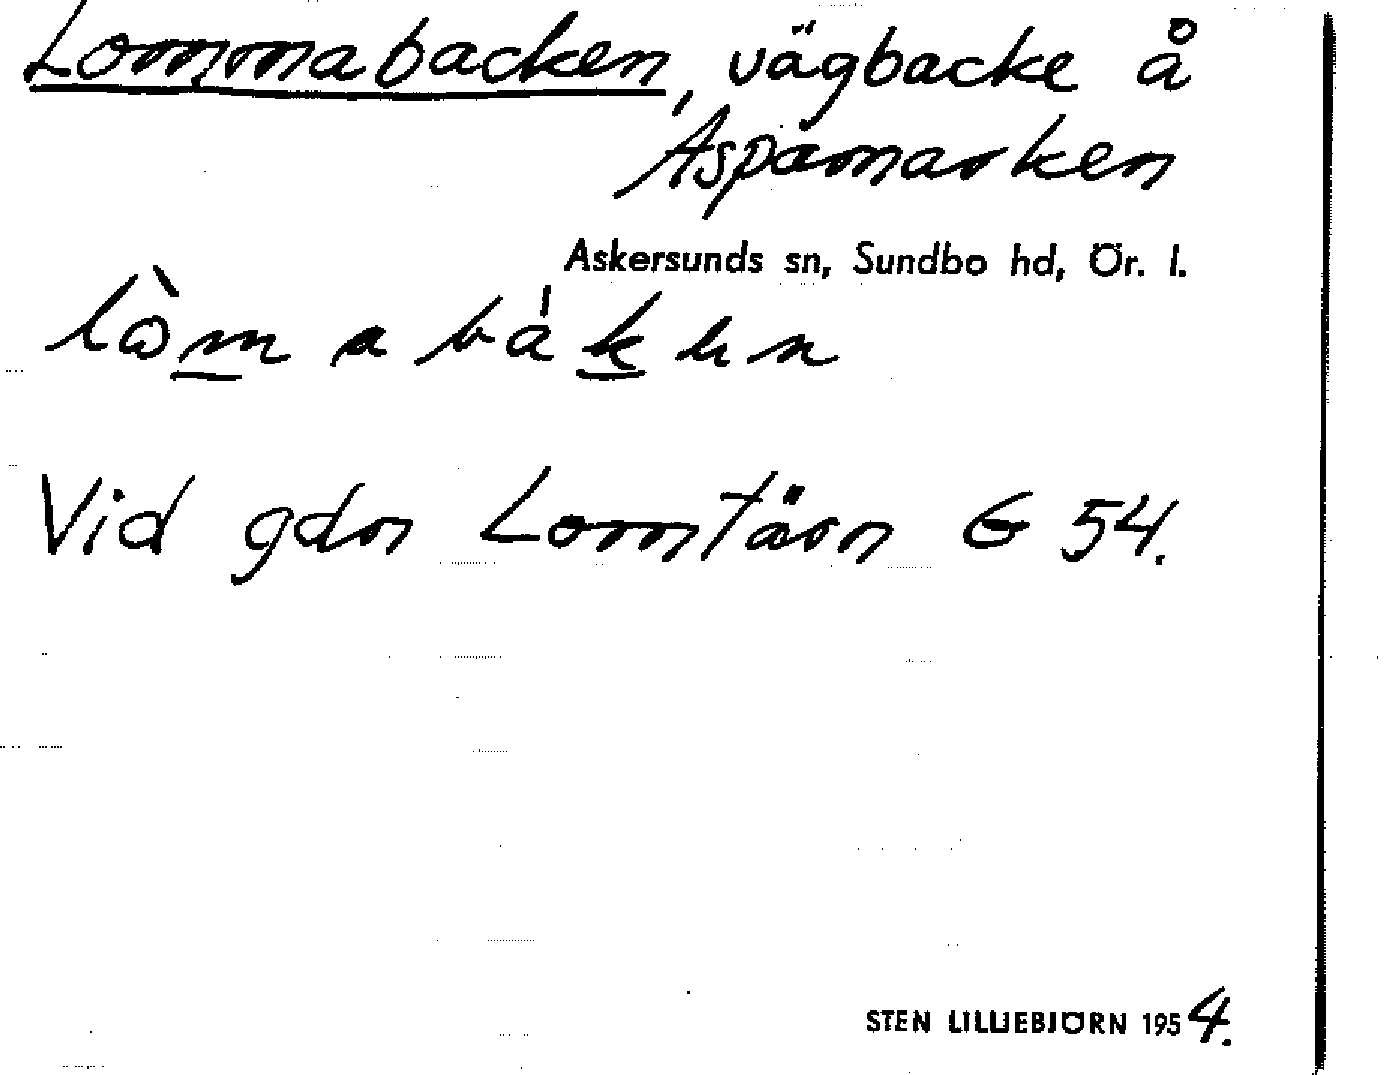 Lommabacken, vägbacke å
Aspamarken
Askersunds sn, Sundbo hd, Ör. l.
Vid gdn Lomtärn E 54.
STEN LILLIEBJÖRN 1954.